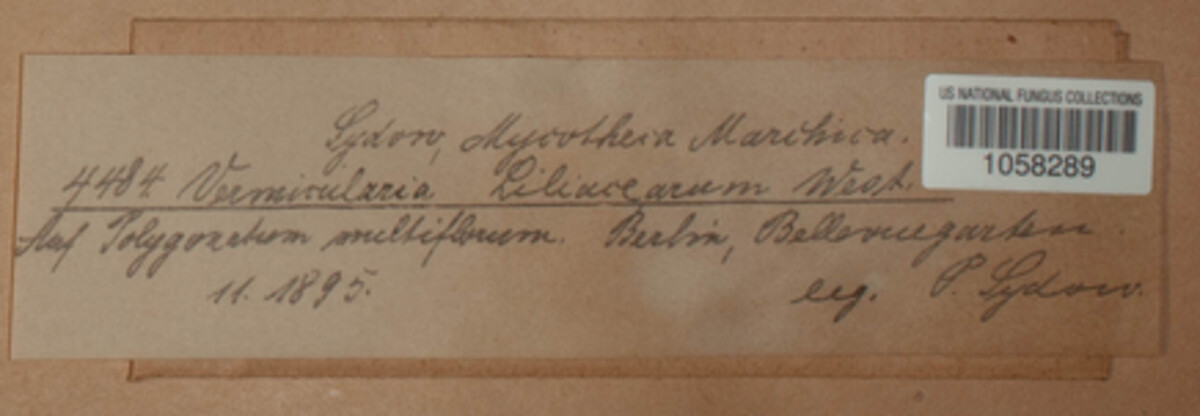 Sydow, Mycotheca Marchica.
US NATIONAL FUNGUS COLLECTIONS
1058289
4484. Vermicularia Liliacearum West.
Auf Polygonatum multiflorum. Berlin, Bellevuegarten.
11. 1895. leg. P. Sydow.